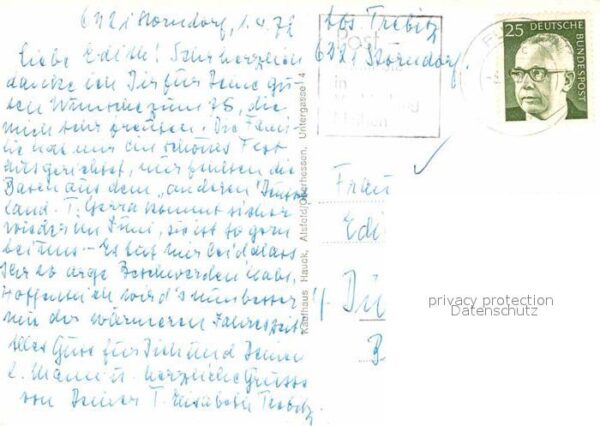 6321 Storndorf, 1.4.72
Liebe Edith! Sehr herzlich
danke ich Dir für Deine gu-
ten Wünsche zum 75, die
mich sehr freuten. Die Fami-
lie hat mir ein schönes Fest
ausgerichtet, nur fehlten die
Basen aus dem "anderen" Deutsch-
land. T. kommt sicher
wieder im Juni, sie ist so gern
bei uns - Es tut mir leid dass
Ihr so arge Beschwerden habt,
Hoffentlich wird's nun besser
mit der wärmeren Jahreszeit
Alles Gute für Dich und Deinen
l. Mann u. herzliche Grüsse
von Deiner T. Elisabeth Trebitz.
Kaufhaus Hauck, Alsfeld/Oberhessen, Untergasse 4
Abs Trebitz
6321 Storndorf.
Post
in
25 DEUTSCHE BUNDESPOST
Frau
Edi
privacy protection
Datenschutz